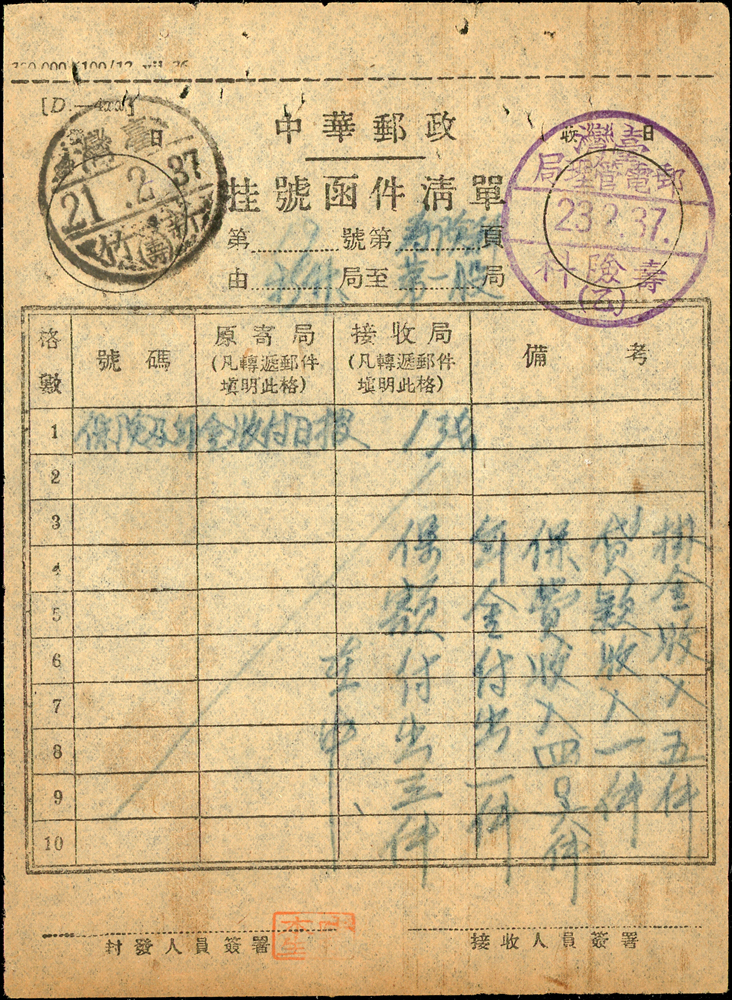 [D.—
中華郵政
挂號函件清單
第 12 號第 壽險科 頁
由 新竹 局至 第一股 局
日
收
日
臺灣
21.2.37
新竹
臺灣郵電管理局
23.2.37.
壽險科
格數 號碼 原寄局(凡轉遞郵件填明此格) 接收局(凡轉遞郵件填明此格) 備考
1 保險及年金收付日報
2
3
4
5
6
7
8
9
10
掛金收入五件
貸款收入一件
保費收入四
年金付出一件
保額付出三件
在中
封發人員簽署
接收人員簽署